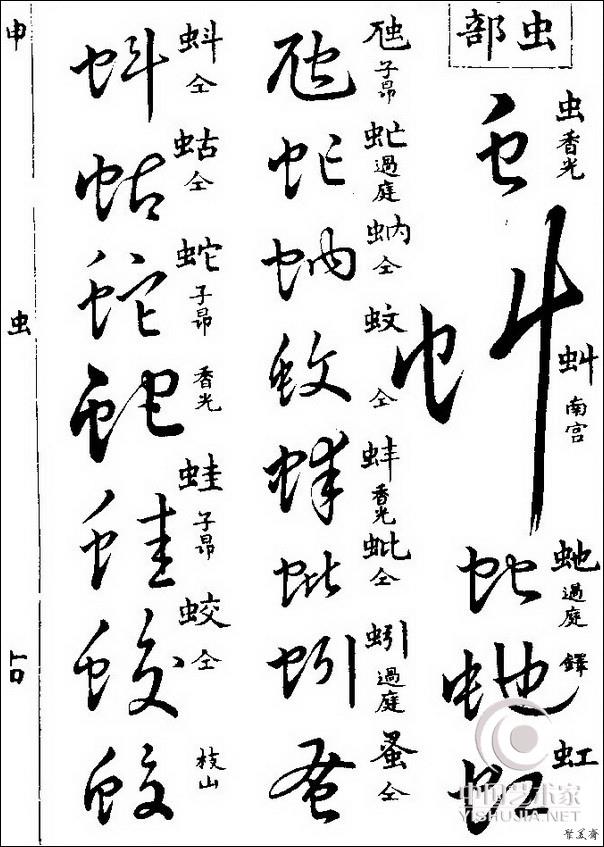 虫部
虫 香光
虯 南宫
虵 過庭
鐸
虹
虺 子昂
虻 過庭
蚋 仝
蚊 仝
蚌 香光
蚍 仝
蚓 過庭
蚤 仝
蚪 仝
蛄 仝
蛇 子昂
香光
蛙 子昂
蛟 仝
枝山
申
虫
中国艺术家
YISHUJIA.NET.CN